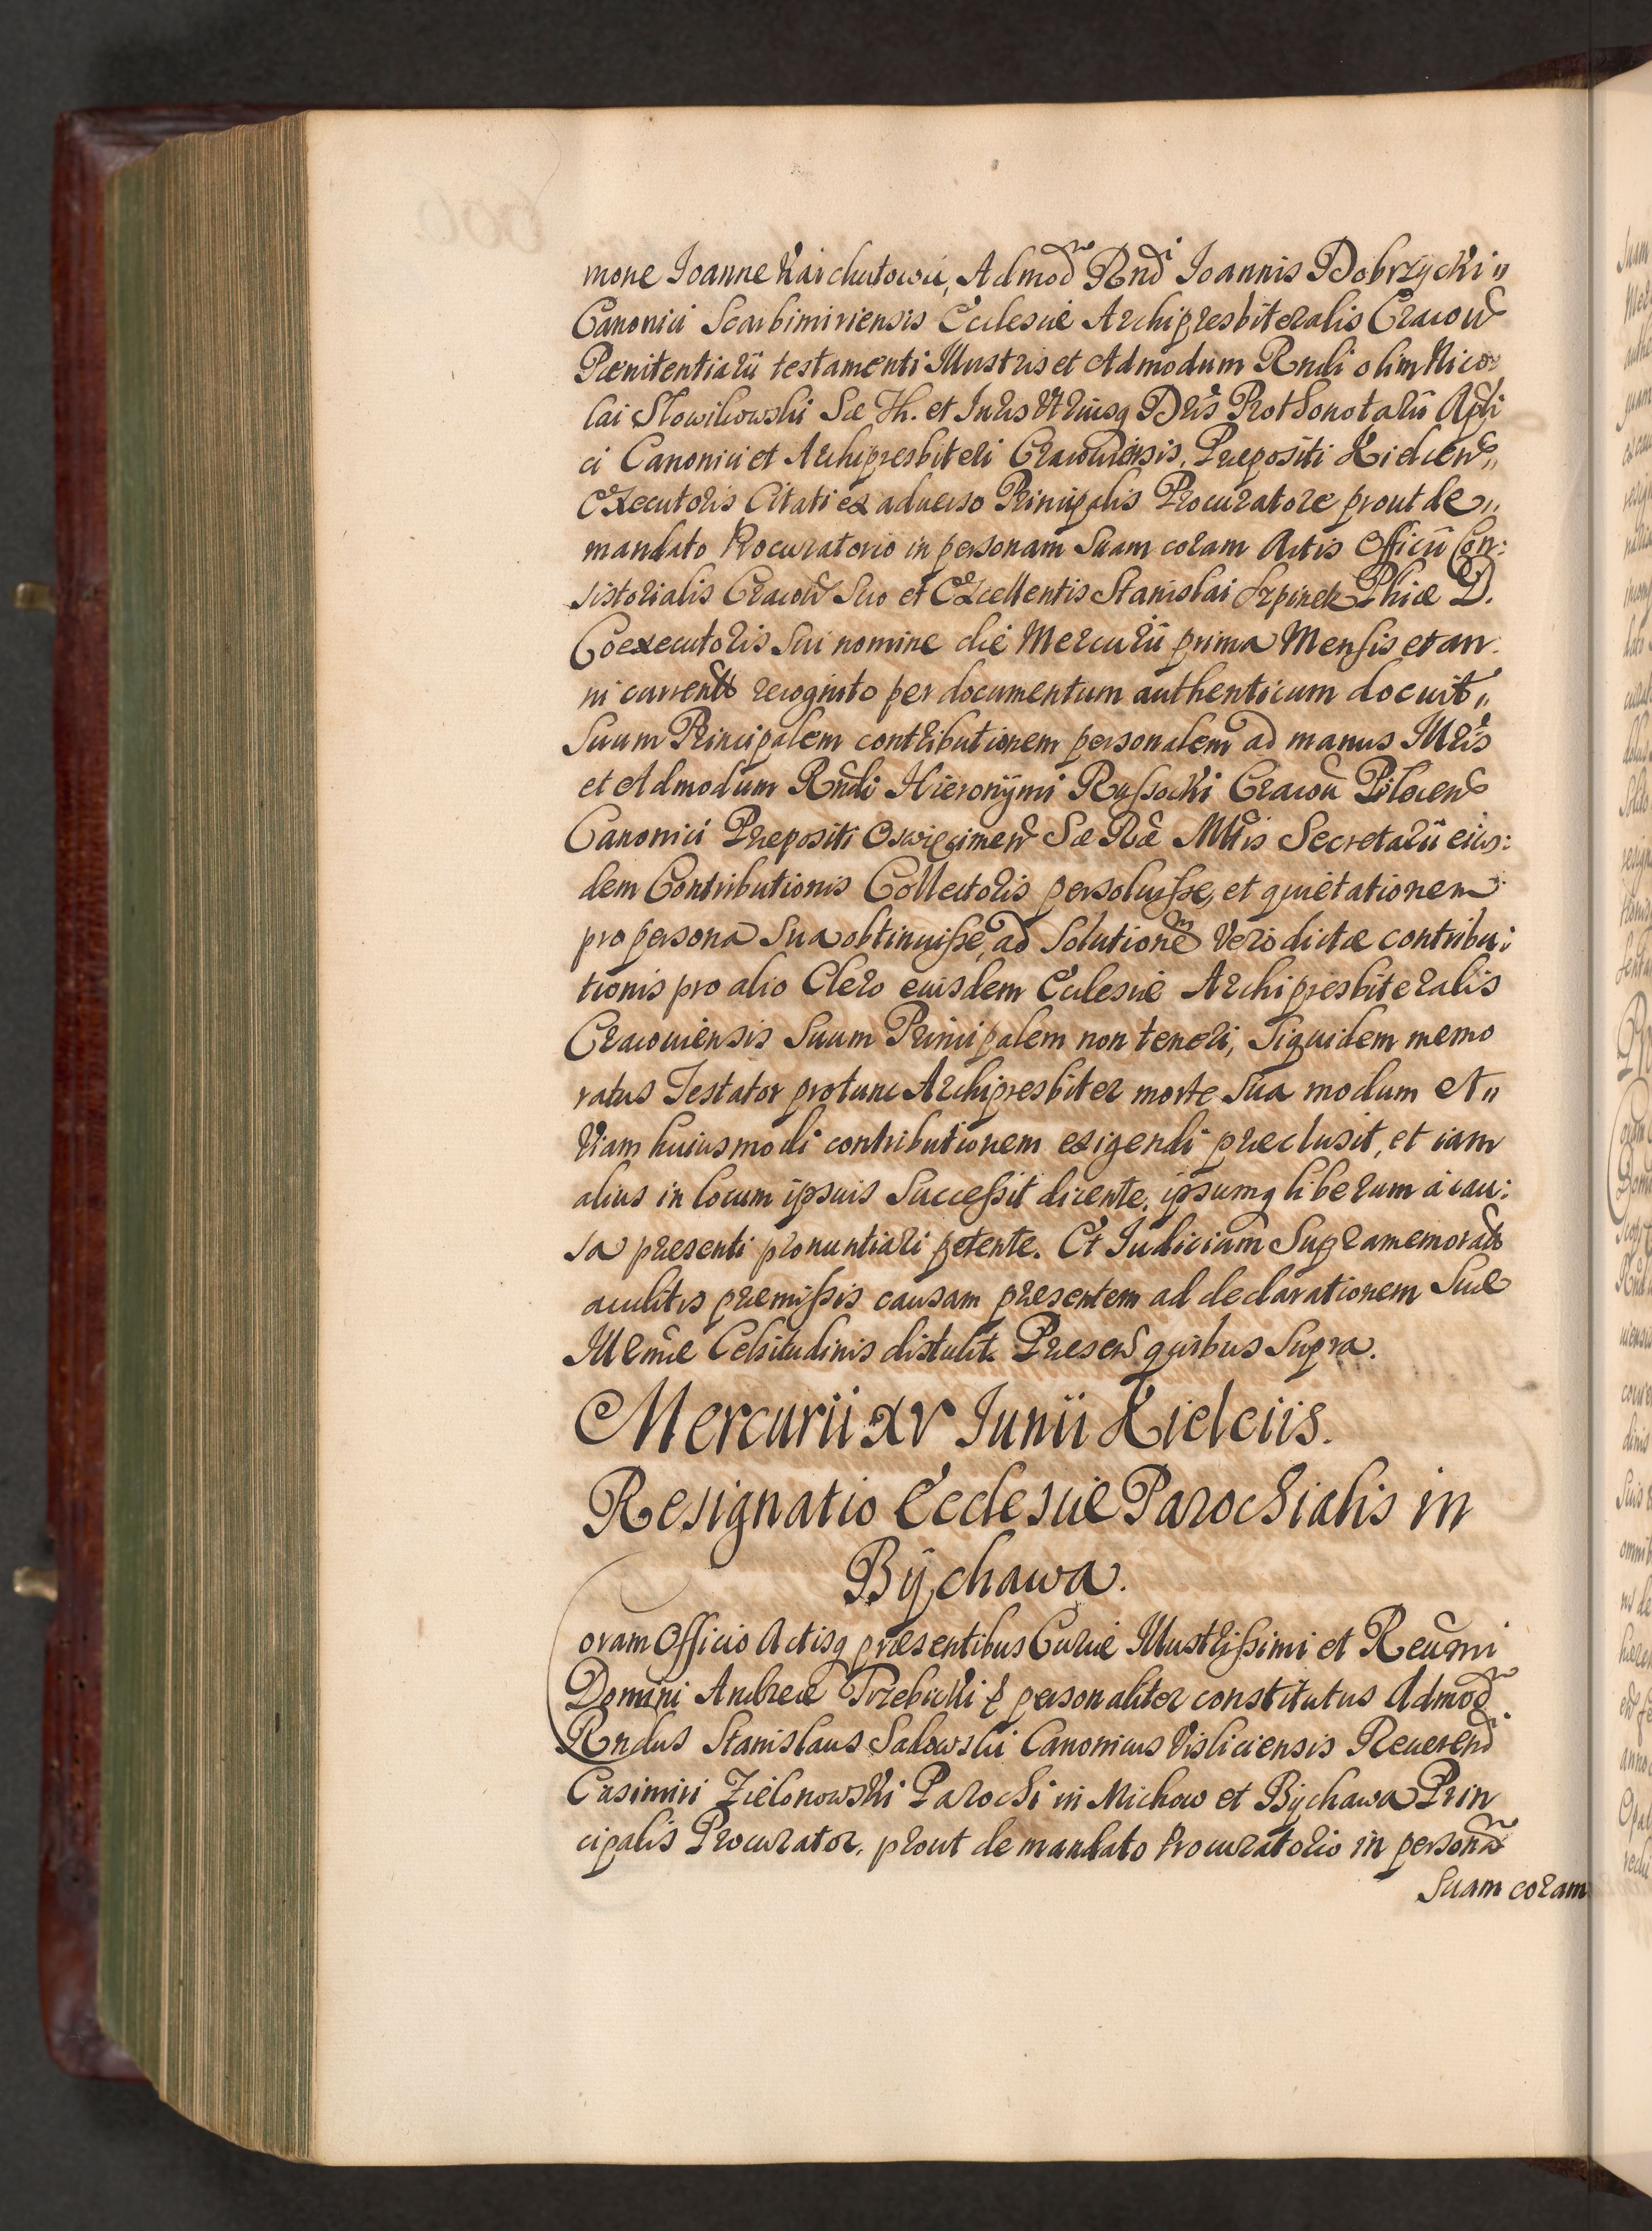 mone Joanne Karchutowic, Admod̃m Rndi Joannis Dobrzycki
Canonici Scarbimiriensis Ecclesiæ Archipresbiteralis Cracow
Pœnitentiarii testamenti Illustris et Admodum Rndi olim Nico
lai Slowikowski Sæ Th. et Juris Utriusq Dris Prothonotarii Apli
ci Canonici et Archipresbiteri Cracowiensis, Præpositi Kielcens
Executoris Citati ex aduerso Principalis Procuratore prout de
mandato Procuratorio in personam Suam coram Actis Officii Con:
sistorialis Cracow Suo et Excellentis Stanislai Szpinek Phiæ D.
Coexecutoris Sui nomine die Mercurii prima Mensis et an
ni currentis recognito per documentum authenticum docuit
Suum Principalem contributionem personalem ad manus Illris
et Admodum Rndi Hieronÿmi Russocki Cracou Pilocen
Canonici Præpositi Oswięcimen Sæ Ræ Mttis Secretarii eius:
dem Contributionis Collectoris persoluisse, et quietationem
pro persona Sua obtinuisse, ad Solutionem Vero dictæ contribu:
tionis pro alio Clero eiusdem Ecclesiæ Archipresbiteralis
Cracouiensis Suum Principalem non teneri, Siquidem memo
ratus Testator protunc Archipresbiter morte Sua modum et
Viam huiusmodi contributionem exigendi præclusit, et iam
alius in locum ipsius Successit dicente, ipsumq liberum à cau:
sa præsenti pronuntiari petente. Et Judicium Supramemorato
auditis præmissis causam præsentem ad declarationem Suæ
Illrmæ Celsitudinis distulit. Præsen quibus Supra.
Mercurii xv Junii Kielciis.
Resignatio Ecclesiæ Parochialis in
Bÿchawa.
Coram Officio Actisq præsentibus Curiæ Illustrissimi et Reumi
Domini Andreæ Trzebicki personaliter constitutus Admod
Rndus Stanislaus Sadowski Canonicus Visliciensis Reuerend
Casimiri Zielonowski Parochi in Michow et Bychawa Prin
cipalis Procurator, prout de mandato Procuratorio in personam
Suam coram